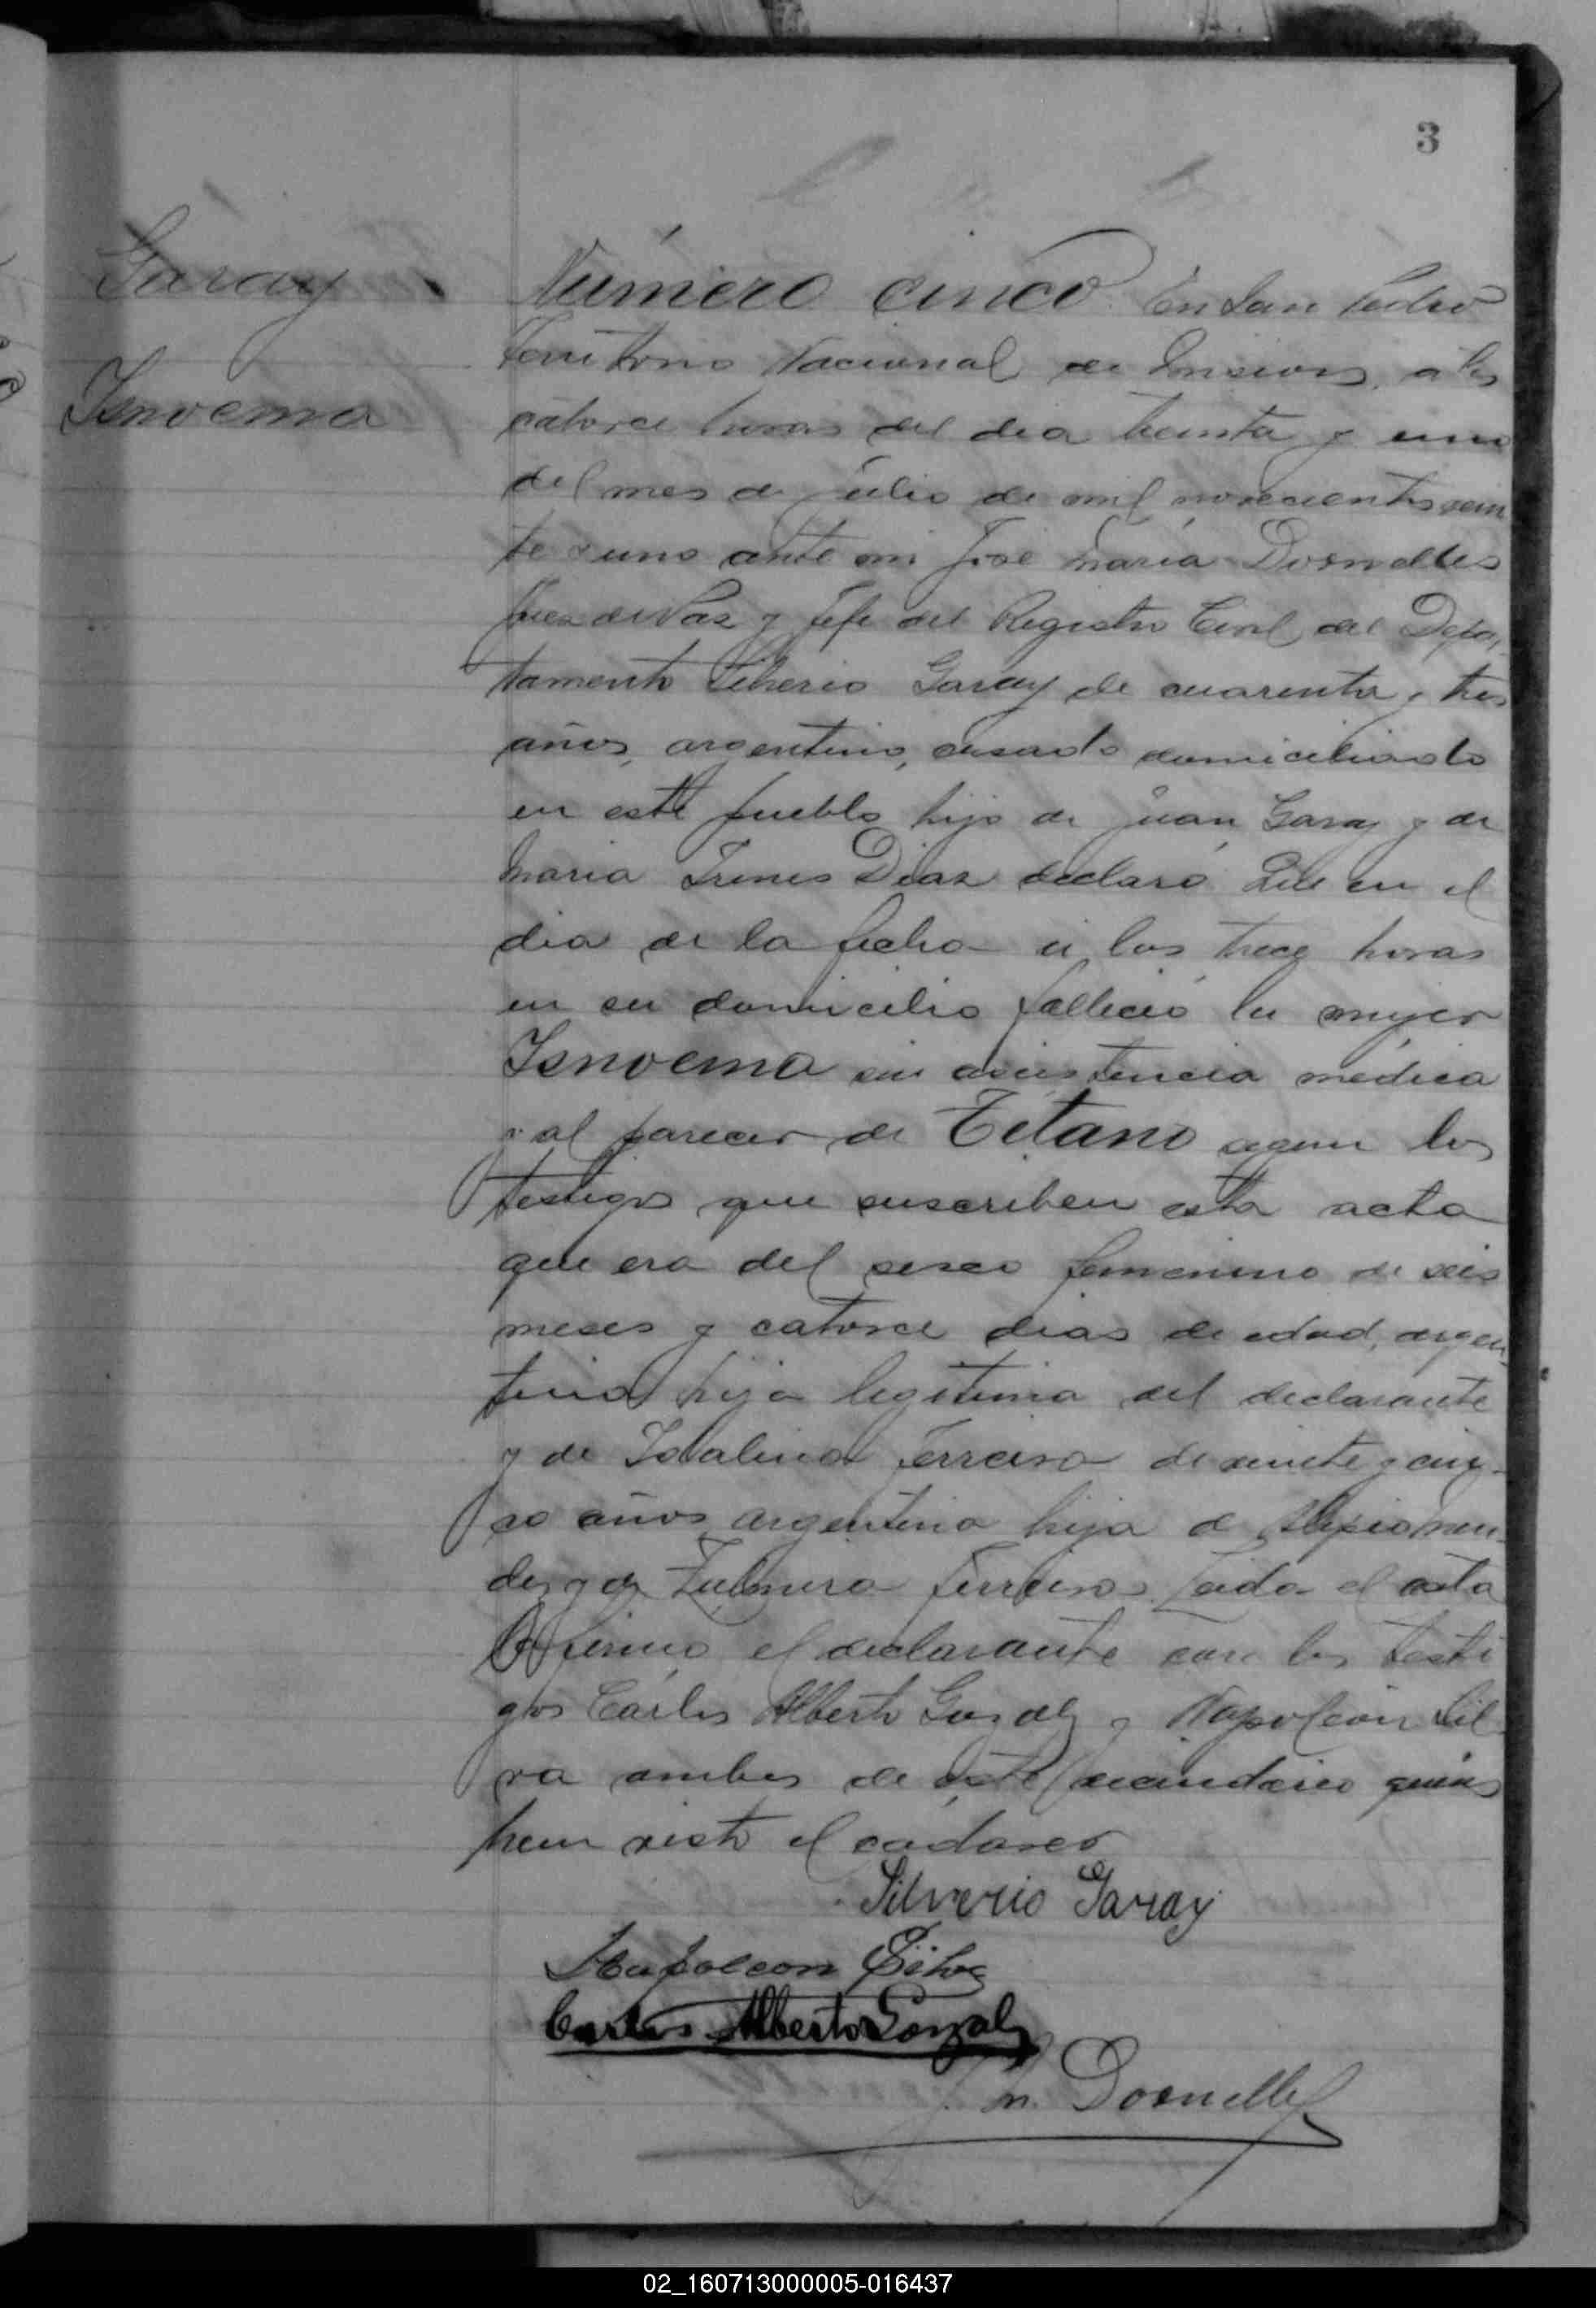 3
Garay
Isnoema
Número cinco. En San Pedro
Territorio Nacional de Misiones, a las
catorce horas del dia treinta y uno
del mes de julio de mil novecientos vein
te y uno ante mi José María Dornelles
Juez de Paz y Jefe del Registro Civil del Depar
tamento Silverio Garay de cuarenta y tres
años, argentino, casado domiciliado
en este pueblo hijo de Juan Garay y de
Maria Irenes Diaz declaró Que en el
dia de la fecha a las trece horas
en su domicilio falleció la mujer
Isnoema sin asistencia médica
y al parecer de Tétano segun los
testigos que suscriben esta acta
que era del sexo femenino de seis
meses y catorce dias de edad, argen
tina hija legitima del declarante
y de Idalina Ferreira de veinte y cin
co años argentina hija de Men
dez y de Zulmira Ferreira. Leida el acta
la firmó el declarante con los testi
gos Cárlos Alberto Gonzalz y Napoleón Sil
va ambos de este vecindario quienes
han visto el cadaver
Silverio Garay
Napoleon Silva
Carlos Alberto Gonzalz
J. M. Dornelles
02_160713000005-016437